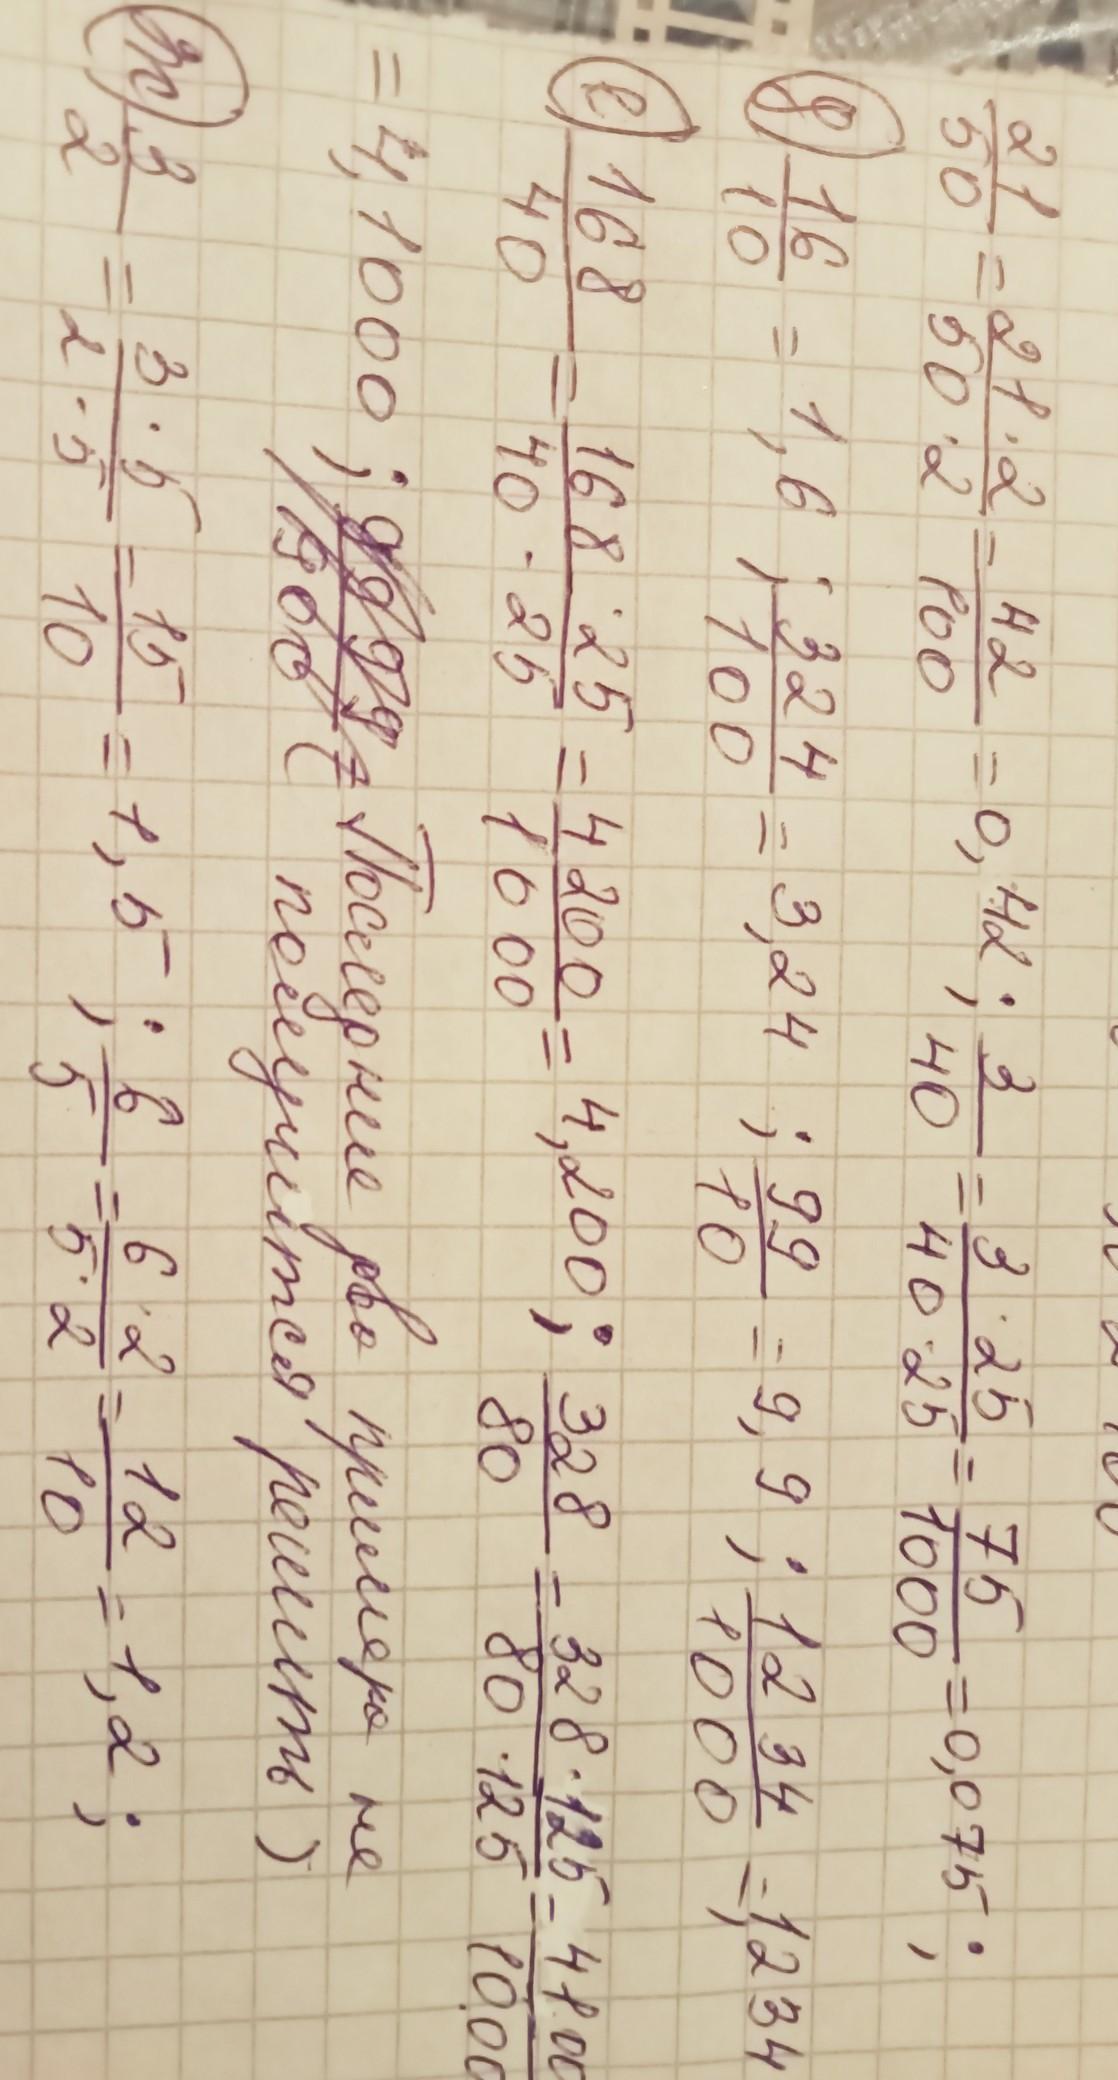 21/50 = 21·2/50·2 = 42/100 = 0,42; 3/40 = 3·25/40·25 = 75/1000 = 0,075;
д) 16/10 = 1,6; 324/100 = 3,24; 99/10 = 9,9; 1234/1000 = 1,234
е) 168/40 = 168·25/40·25 = 4200/1000 = 4,200; 328/80 = 328·125/80·125 = 4100/1000
= 4,1000; (Последние два примера не
получится решить)
ж) 3/2 = 3·5/2·5 = 15/10 = 1,5; 6/5 = 6·2/5·2 = 12/10 = 1,2;